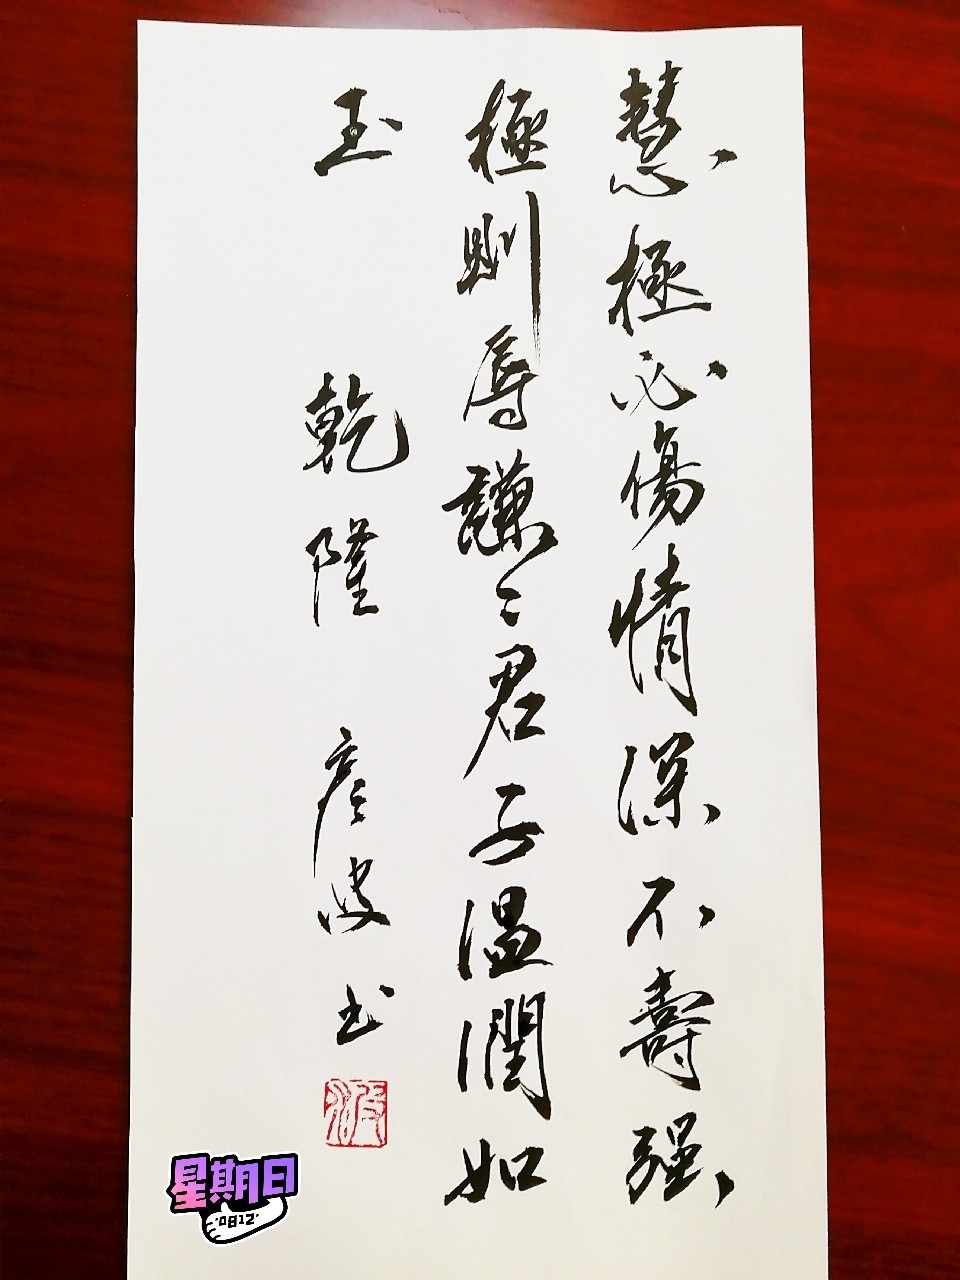 慧極必傷情深不壽强
極則辱謙〻君子溫潤如
玉 乾隆 彥波書
波
星期日
0812